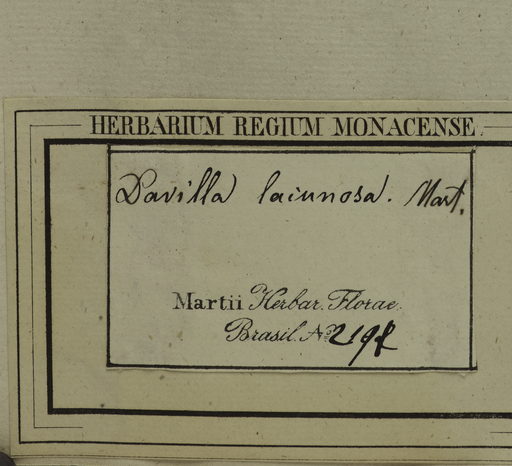 HERBARIUM REGIUM MONACENSE.
Davilla lacunosa. Mart.
Martii Herbar. Florae.
Brasil. No